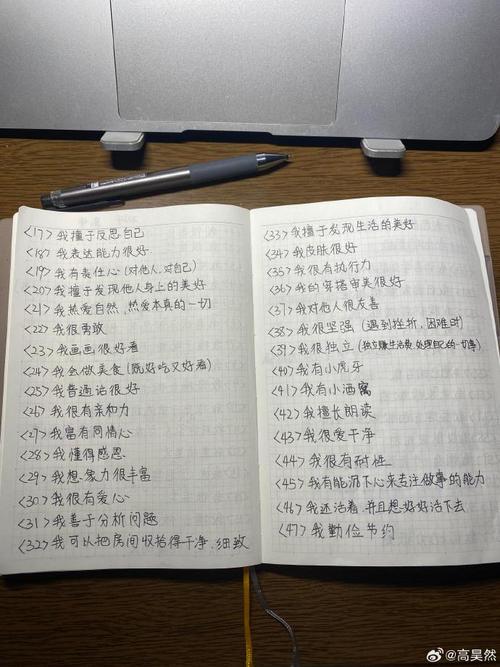 <17> 我擅于反思自己
<18> 我表达能力很好
<19> 我有责任心(对他人.对自己)
<20> 我擅于发现他人身上的美好
<21> 我热爱自然,热爱本真的一切
<22> 我很勇敢
<23> 我画画很好看
<24> 我会做美食(既好吃又好看)
<25> 我普通话很好
<26> 我很有亲和力
<27> 我富有同情心
<28> 我懂得感恩
<29> 我想象力很丰富
<30> 我很有爱心
<31> 我善于分析问题
<32> 我可以把房间收拾得干净.细致
<33> 我擅于发现生活的美好
<34> 我皮肤很好
<35> 我很有执行力
<36> 我的穿搭审美很好
<37> 我对他人很友善
<38> 我很坚强(遇到挫折,困难时)
<39> 我很独立(独立赚生活费,处理自己的一切事)
<40> 我有小虎牙
<41> 我有小酒窝
<42> 我擅长朗读
<43> 我很爱干净
<44> 我很有耐性
<45> 我有能沉下心来专注做事的能力
<46> 我还活着.并且想好好活下去
<47> 我勤俭节约
@高昊然